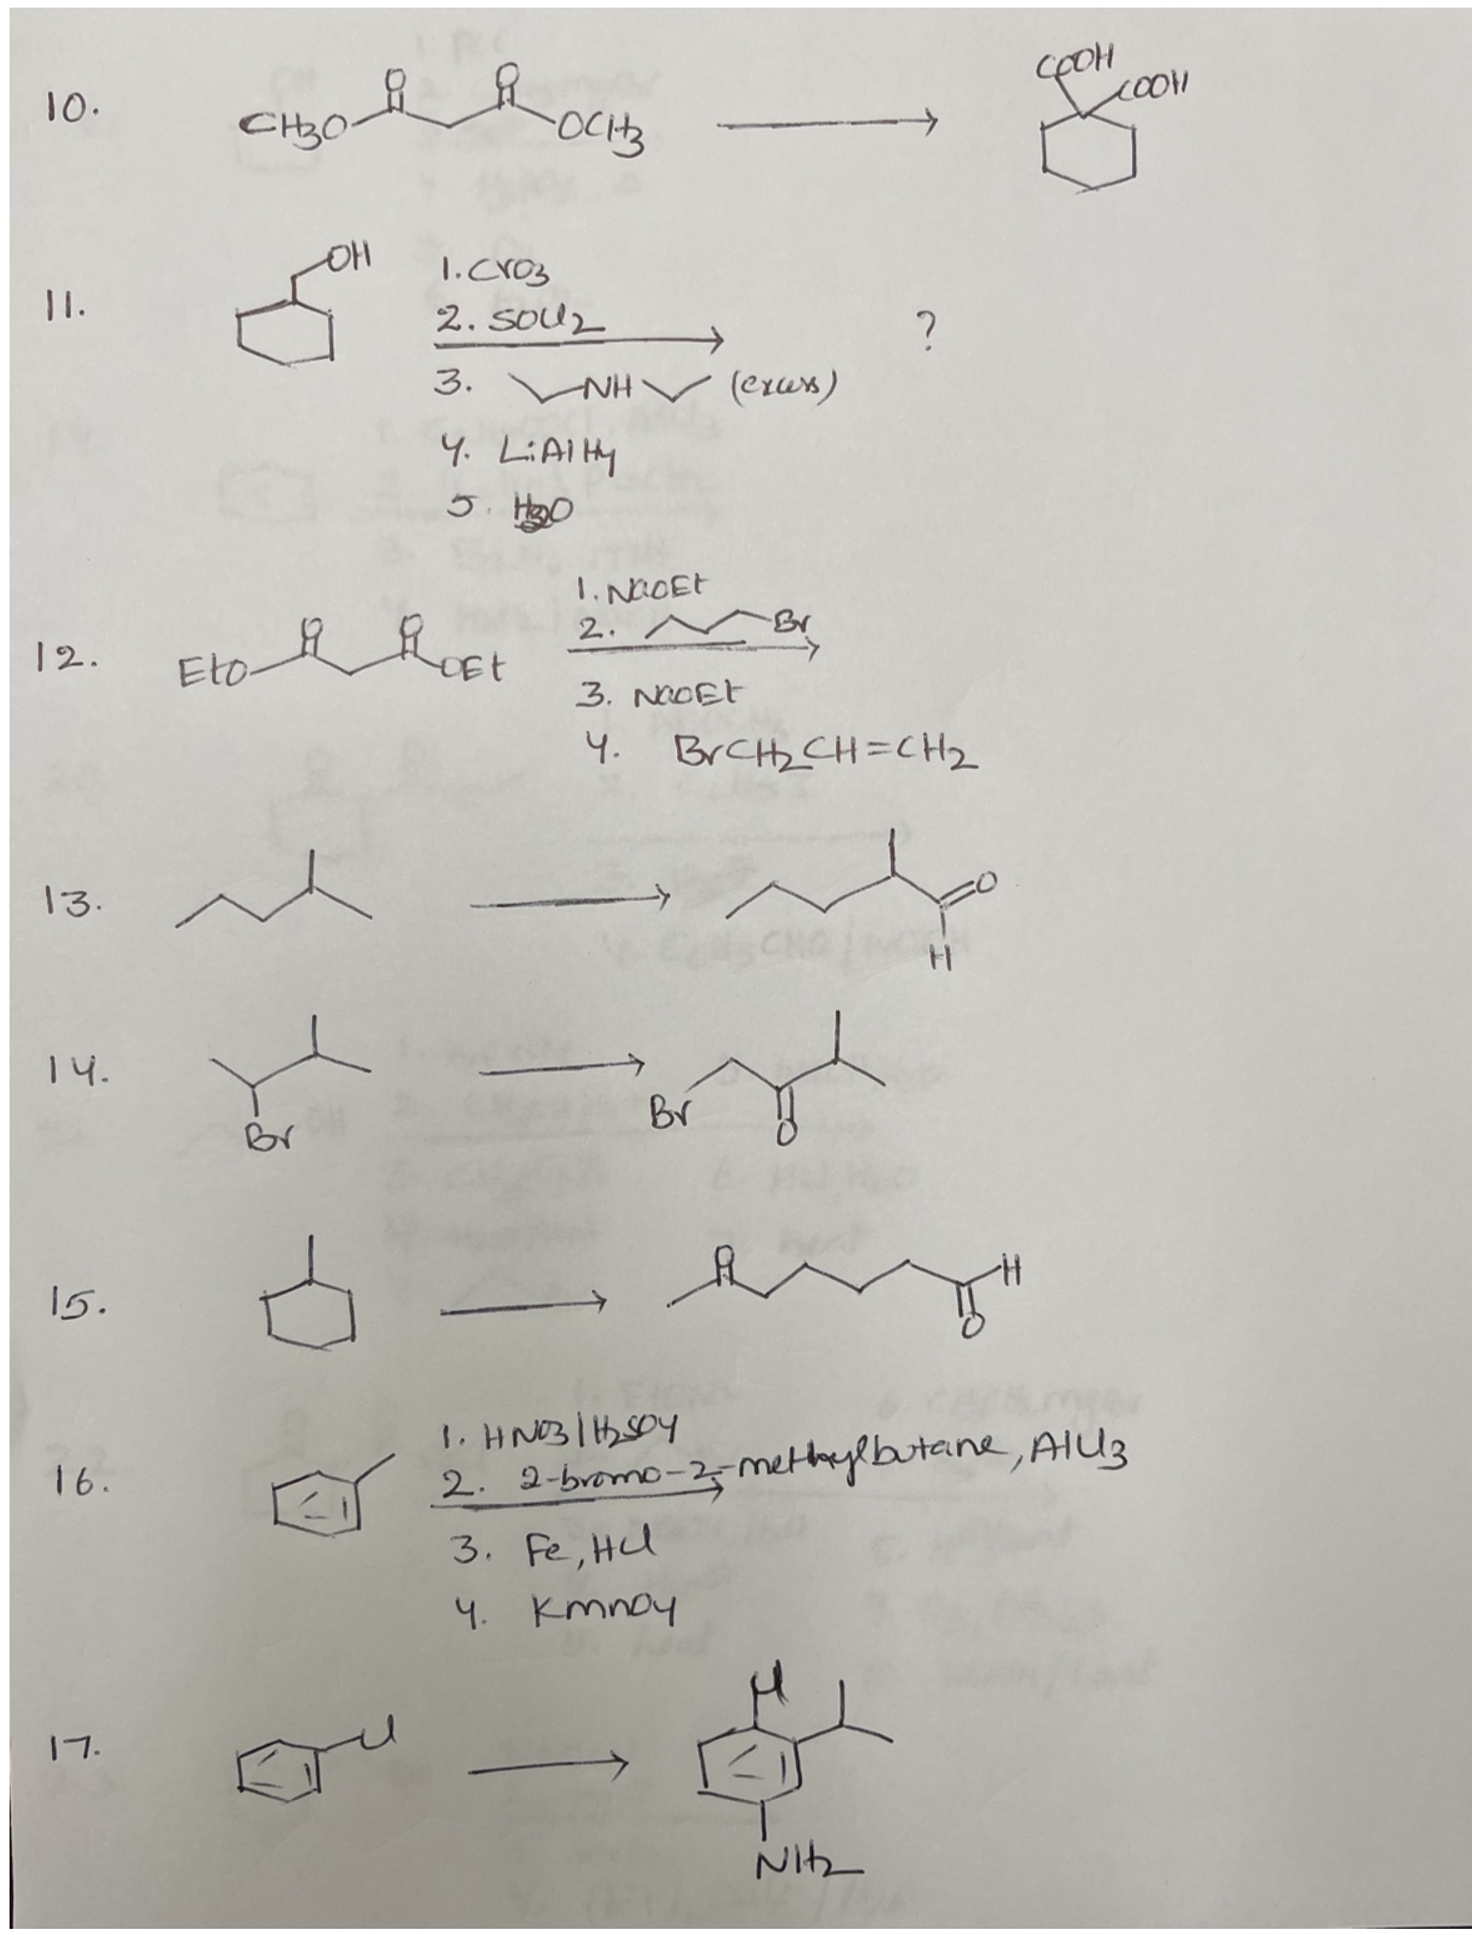 10. CH3O O O OCH3 COOH COOH
11. OH 1. CrO3
2. SOCl2 ?
3. NH (excess)
4. LiAlH4
5. H2O
1. NaOEt
2. Br
12. EtO O O OEt
3. NaOEt
4. BrCH2CH=CH2
13. O
H
14. Br Br O
15. O H
O
1. HNO3/H2SO4
16. 2. 2-bromo-2-methylbutane, AlCl3
3. Fe, HCl
4. KMnO4
17. Cl Cl
NH2